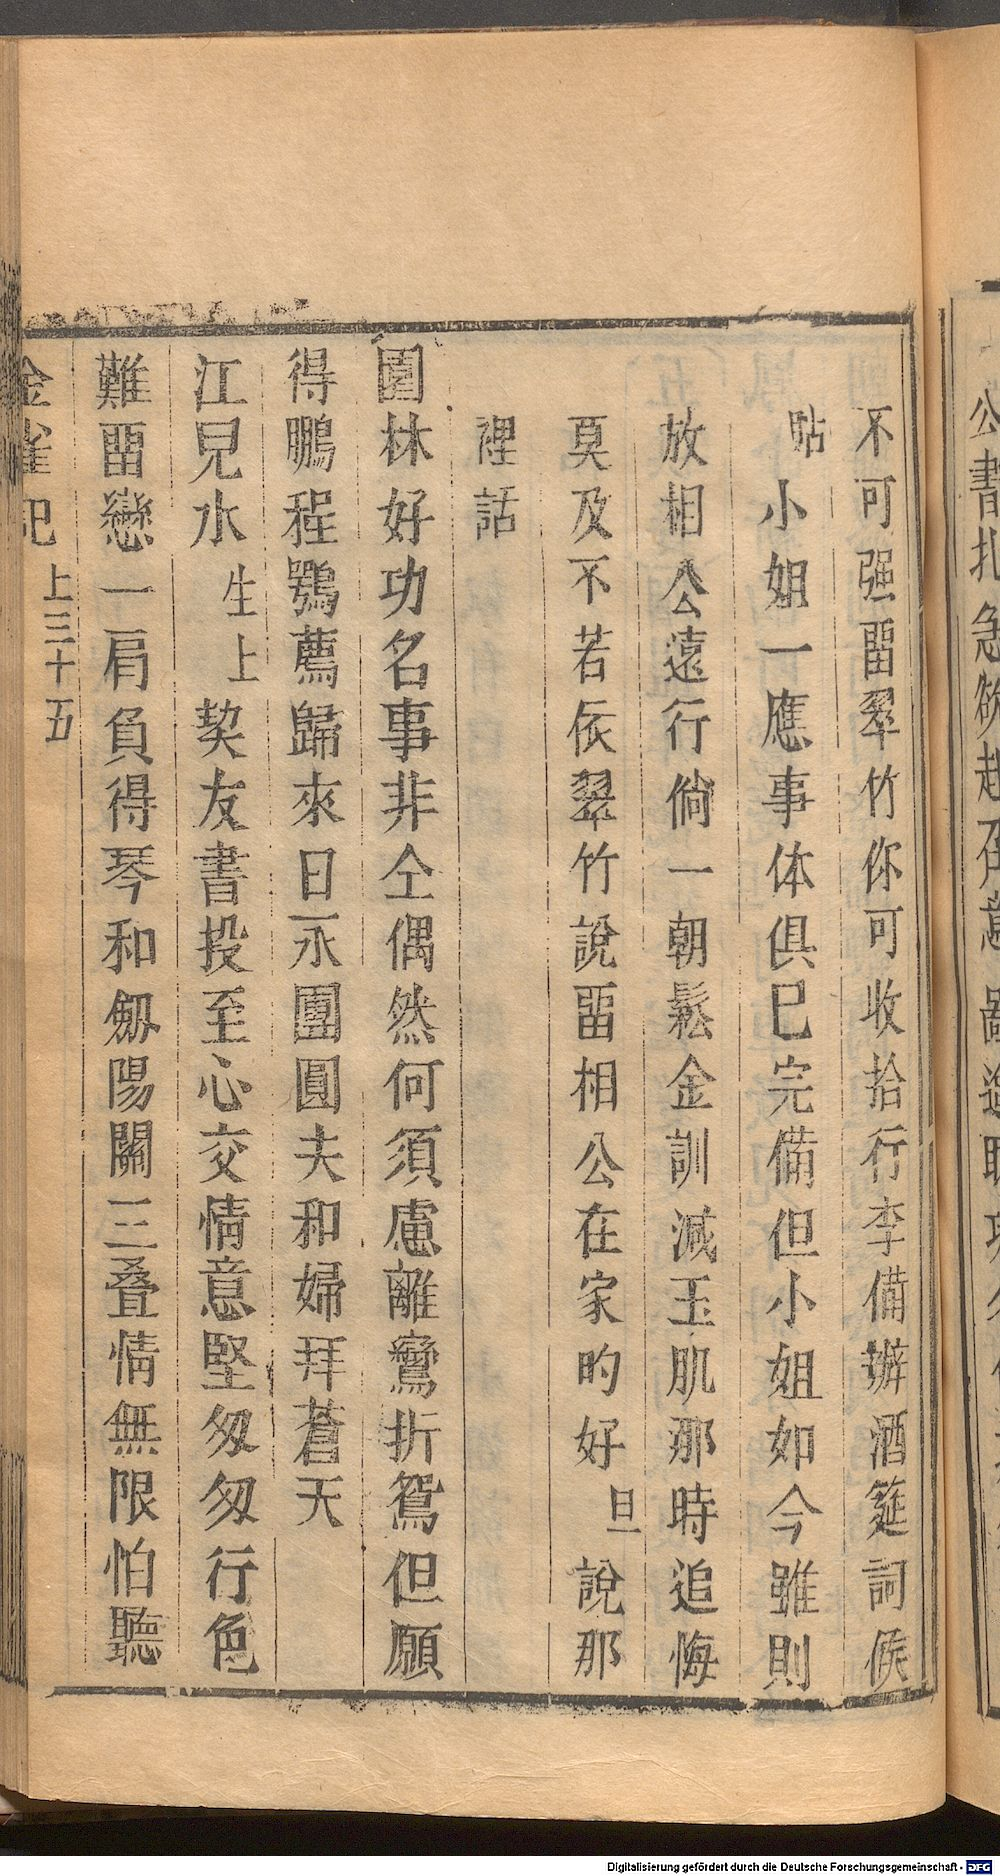 公書扎急欲赴召意
不可强畱翠竹你可收拾行李俻辦酒筵詞候
貼小姐一應事体俱已完備但小姐如今雖則
放相公遠行倘一朝鬆金訓减玉肌那時追悔
莫及不若依翠竹說畱相公在家的好旦說那
裡話
園林好功名事非仝偶然何須慮離鸞折鴛但願
得鵬程鶚薦歸來日永團圓夫和婦拜蒼天
江兒水生上契友書投至心交情意堅匆匆行色
難畱戀一肩負得琴和劔陽關三叠情無限怕聽
金雀記上三十五
Digitalisierung gefördert durch die Deutsche Forschungsgemeinschaft - DFG